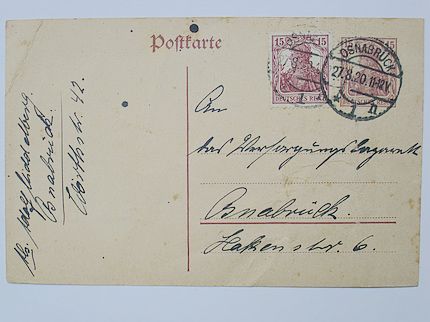 Postkarte
15 15
DEUTSCHES REICH
OSNABRÜCK
27.8.20. 11-12V.
* 1 n
15
An
das Versorgungslazarett
Osnabrück.
Hakenstr. 6.
Osnabrück.
str. 42.